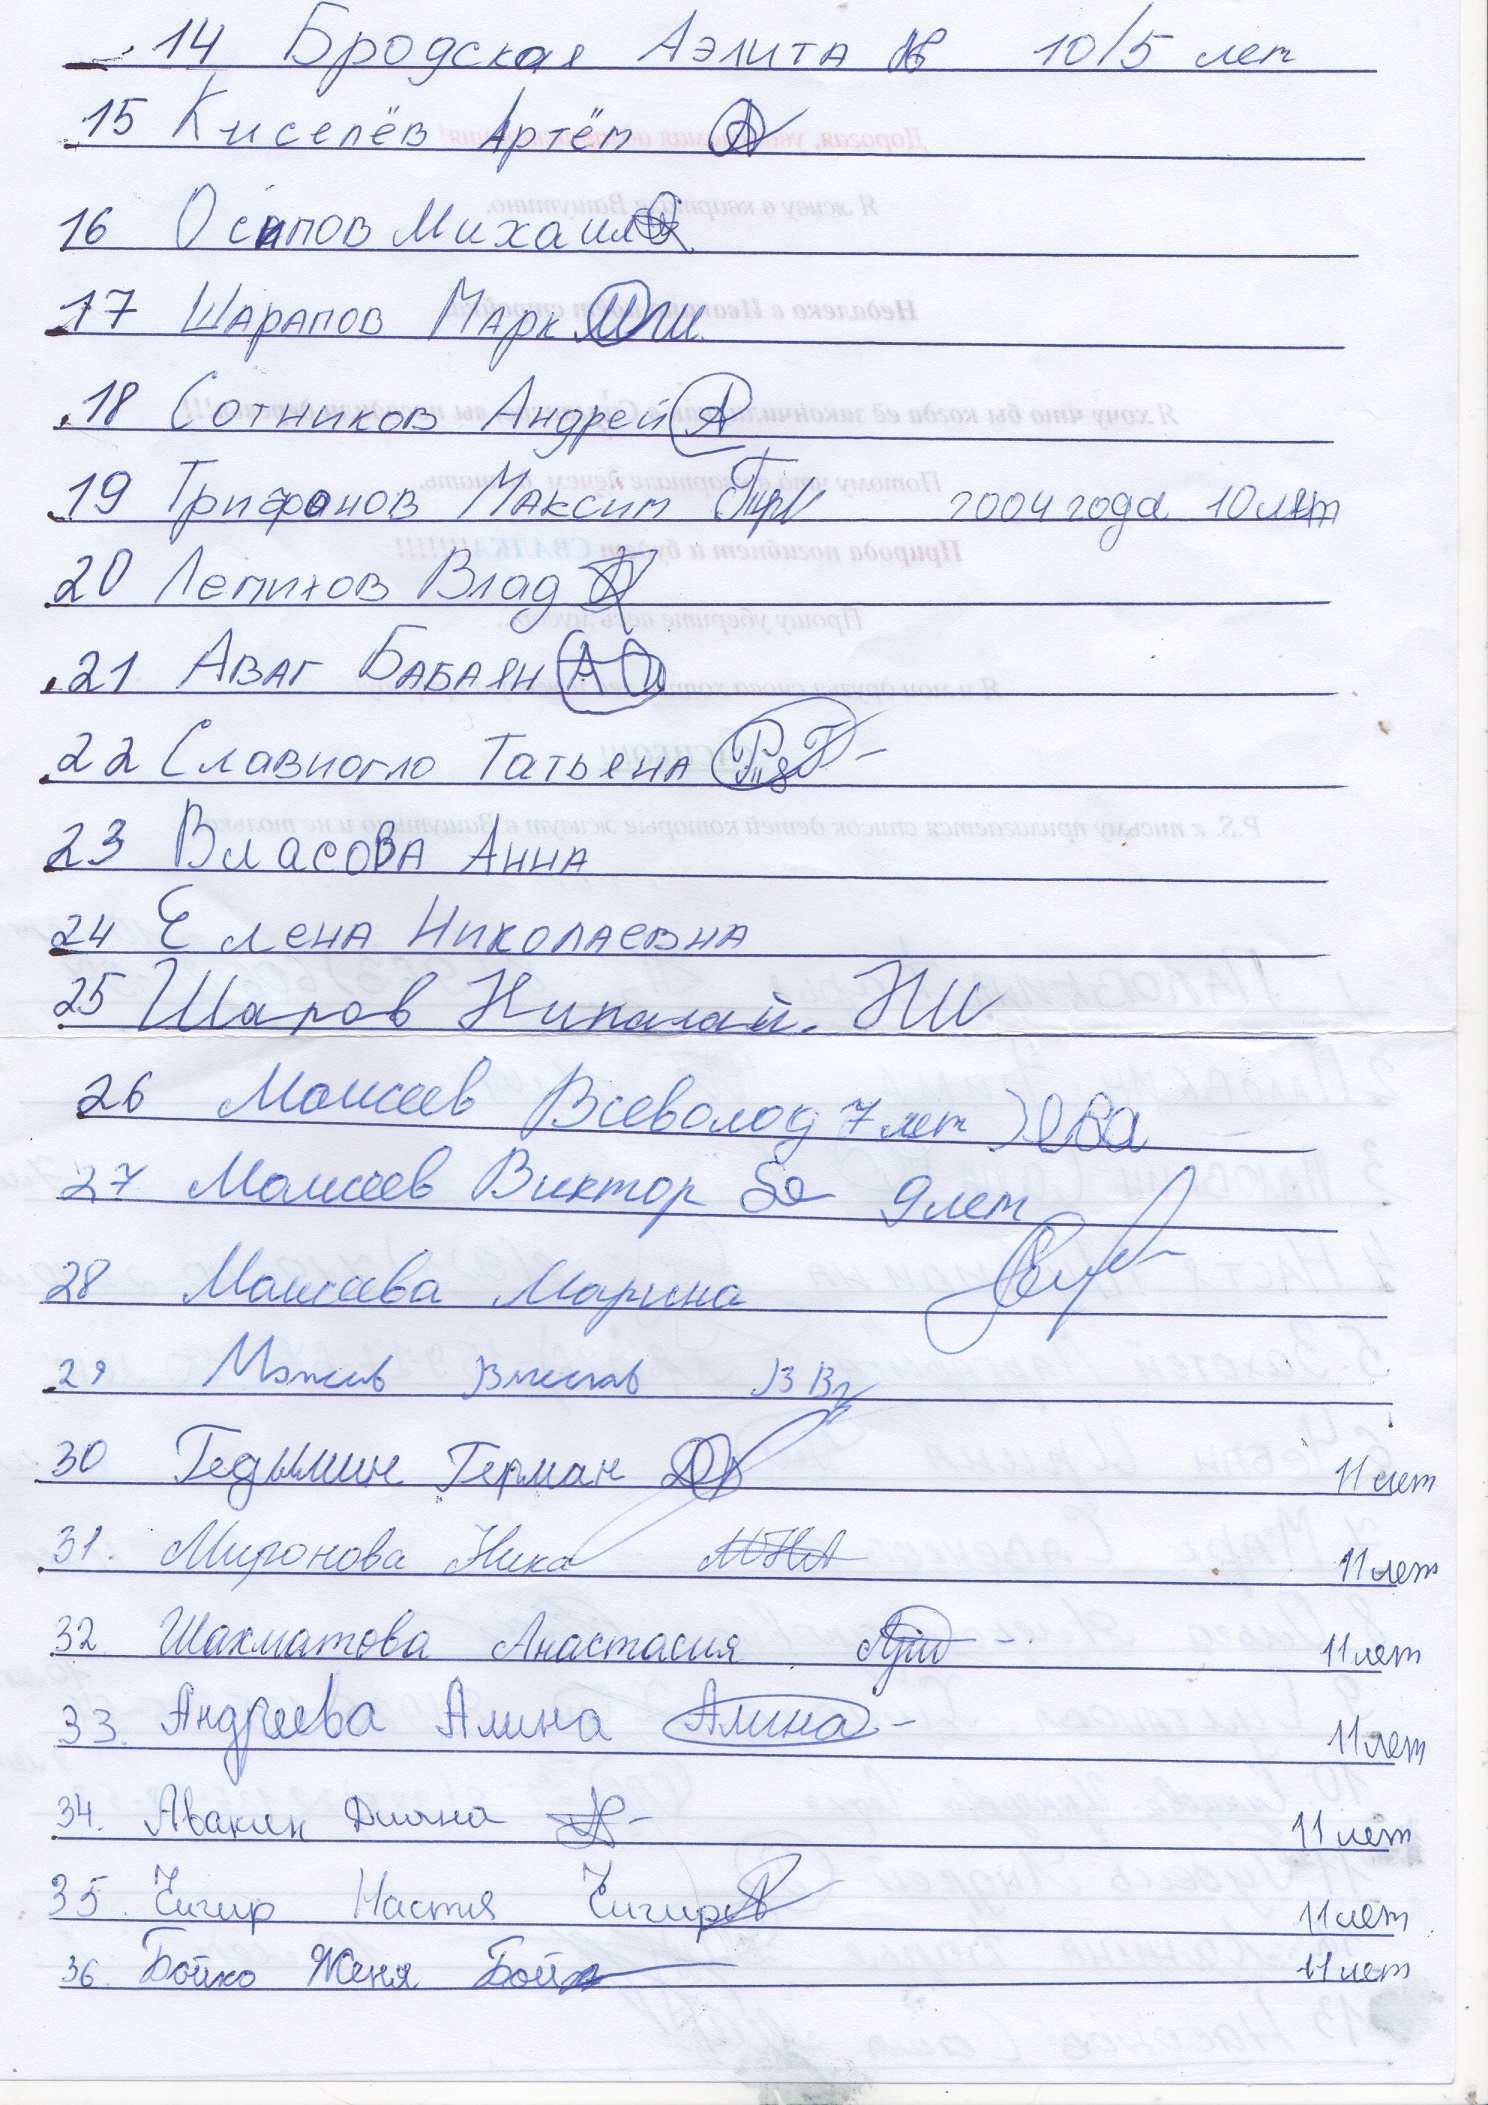 14 Бродская Аэлита 10,5 лет
15 Киселёв Артём
16 Осипов Михаил
17 Шарапов Марк МШ
18 Сотников Андрей А
19 Трифонов Максим 2004 года 10 лет
20 Лепихов Влад
21 Аваг Бабаян
22 Славиогло Татьяна
23 Власова Анна
24 Елена Николаевна
25 Шаров Николай. НШ
26 Моисеев Всеволод 7 лет
27 Моисеев Виктор 9 лет
28 Моисеева Марина
29
30 Гедымин Герман 11 лет
31. Миронова Ника 11 лет
32 Шахматова Анастасия 11 лет
33. Андреева Алина Алина 11 лет
34. Авакян Диана 11 лет
35. Чигир Настя Чигир 11 лет
36. Бойко Женя Бойко 11 лет